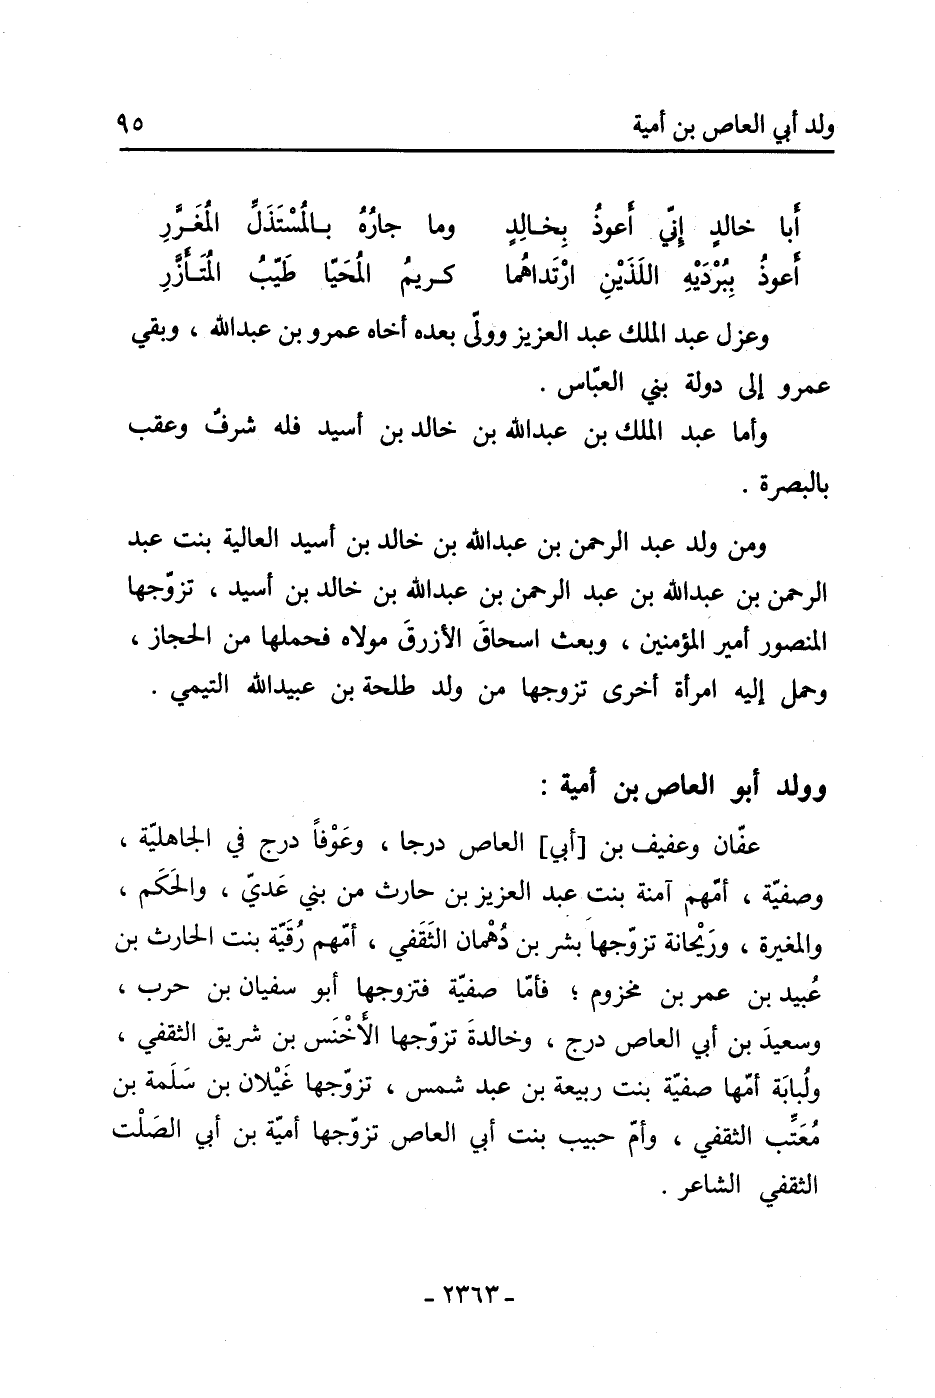 ولد أبي العاص بن أمية ٩٥
أَبا خالدٍ إِنّي أَعوذُ بِخـالِدٍ وما جارُهُ بـالمُسْتَذَلِّ المُغَـرَّرِ
أَعوذُ بِبُرْدَيْهِ اللَذَيْنِ ارْتَداهُما كـريمُ المُحَيّا طَيّبُ المُتَـأَزَّرِ
وعزل عبد الملك عبد العزيز وولّى بعده أخاه عمرو بن عبدالله ، وبقي
عمرو إلى دولة بني العبّاس .
وأما عبد الملك بن عبدالله بن خالد بن أسيد فله شرفٌ وعقب
بالبصرة .
ومن ولد عبد الرحمن بن عبدالله بن خالد بن أسيد العالية بنت عبد
الرحمن بن عبدالله بن عبد الرحمن بن عبدالله بن خالد بن أسيد ، تزوّجها
المنصور أمير المؤمنين ، وبعث اسحاقَ الأزرقَ مولاه فحملها من الحجاز ،
وحمل إليه امرأة أخرى تزوجها من ولد طلحة بن عبيدالله التيمي .
وولد أبو العاص بن أمية :
عفّان وعفيف بن [أبي] العاص درجا ، وعَوْفاً درج في الجاهليّة ،
وصفيّة ، أمّهم آمنة بنت عبد العزيز بن حارث من بني عَديّ ، والحَكَم ،
والمغيرة ، ورَيْحانة تزوّجها بشر بن دُهْمان الثَقَفي ، أمّهم رُقَيّة بنت الحارث بن
عُبيد بن عمر بن مخزوم ؛ فأمّا صفيّة فتزوجها أبو سفيان بن حرب ،
وسعيدَ بن أبي العاص درج ، وخالدةَ تزوّجها الأَخْنَس بن شريق الثقفي ،
ولُبابَة أمّها صفيّة بنت ربيعة بن عبد شمس ، تزوّجها غَيْلان بن سَلَمة بن
مُعَتِّب الثقفي ، وأمّ حبيب بنت أبي العاص تزوّجها أميّة بن أبي الصَلْت
الثقفي الشاعر .
- ٢٣٦٣ -